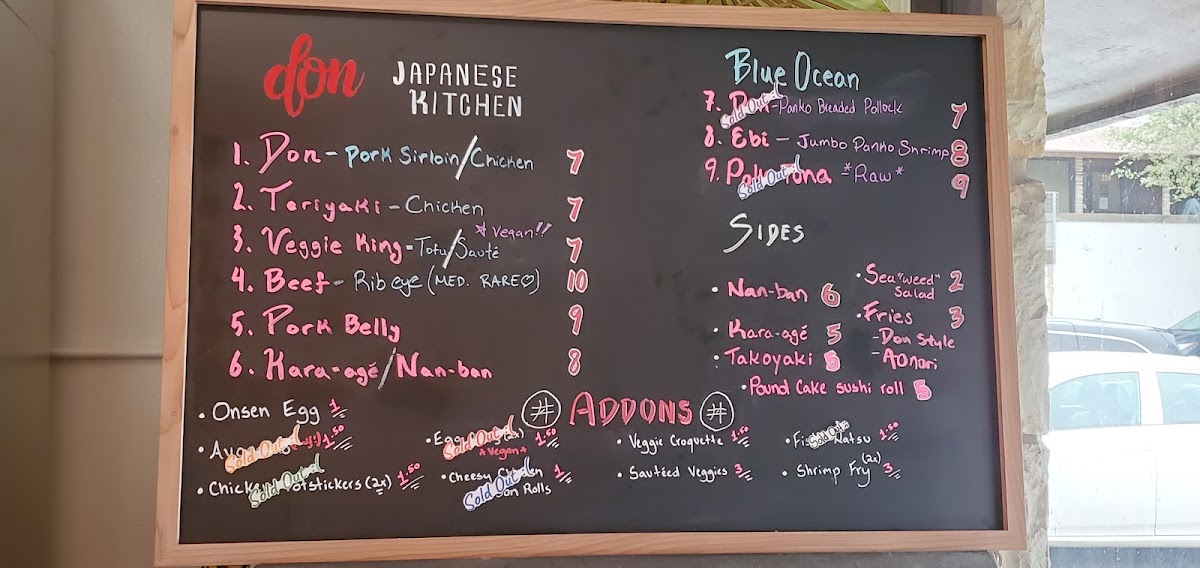 don JAPANESE
KITCHEN
1. Don - Pork Sirloin/Chicken 7
2. Teriyaki - Chicken 7
*Vegan!!
3. Veggie King - Tofu/Sauté 7
4. Beef - Rib eye (MED. RARE♡) 10
5. Pork Belly 9
6. Kara-agé/Nan-ban 8
Blue Ocean
7. Sold Out - Panko Breaded Pollock 7
8. Ebi - Jumbo Panko Shrimp 8
9. Sold Out *Raw* 9
SIDES
• Nan-ban 6
• Kara-agé 5
• Takoyaki 5
• Sea "weed" 2
Salad
• Fries 3
- Don Style
- Aonori
• Pound Cake sushi roll 5
# ADDONS #
• Onsen Egg 1
• Sold Out 1.50
• Sold Out potstickers (2x) 1.50
• Egg Sold Out (2x) 1.50
*Vegan*
• Cheesy 1
Sold Out Rolls
• Veggie Croquette 1.50
• Sautéed Veggies 3
• Sold Out Katsu 1.50
• Shrimp Fry (2x) 3